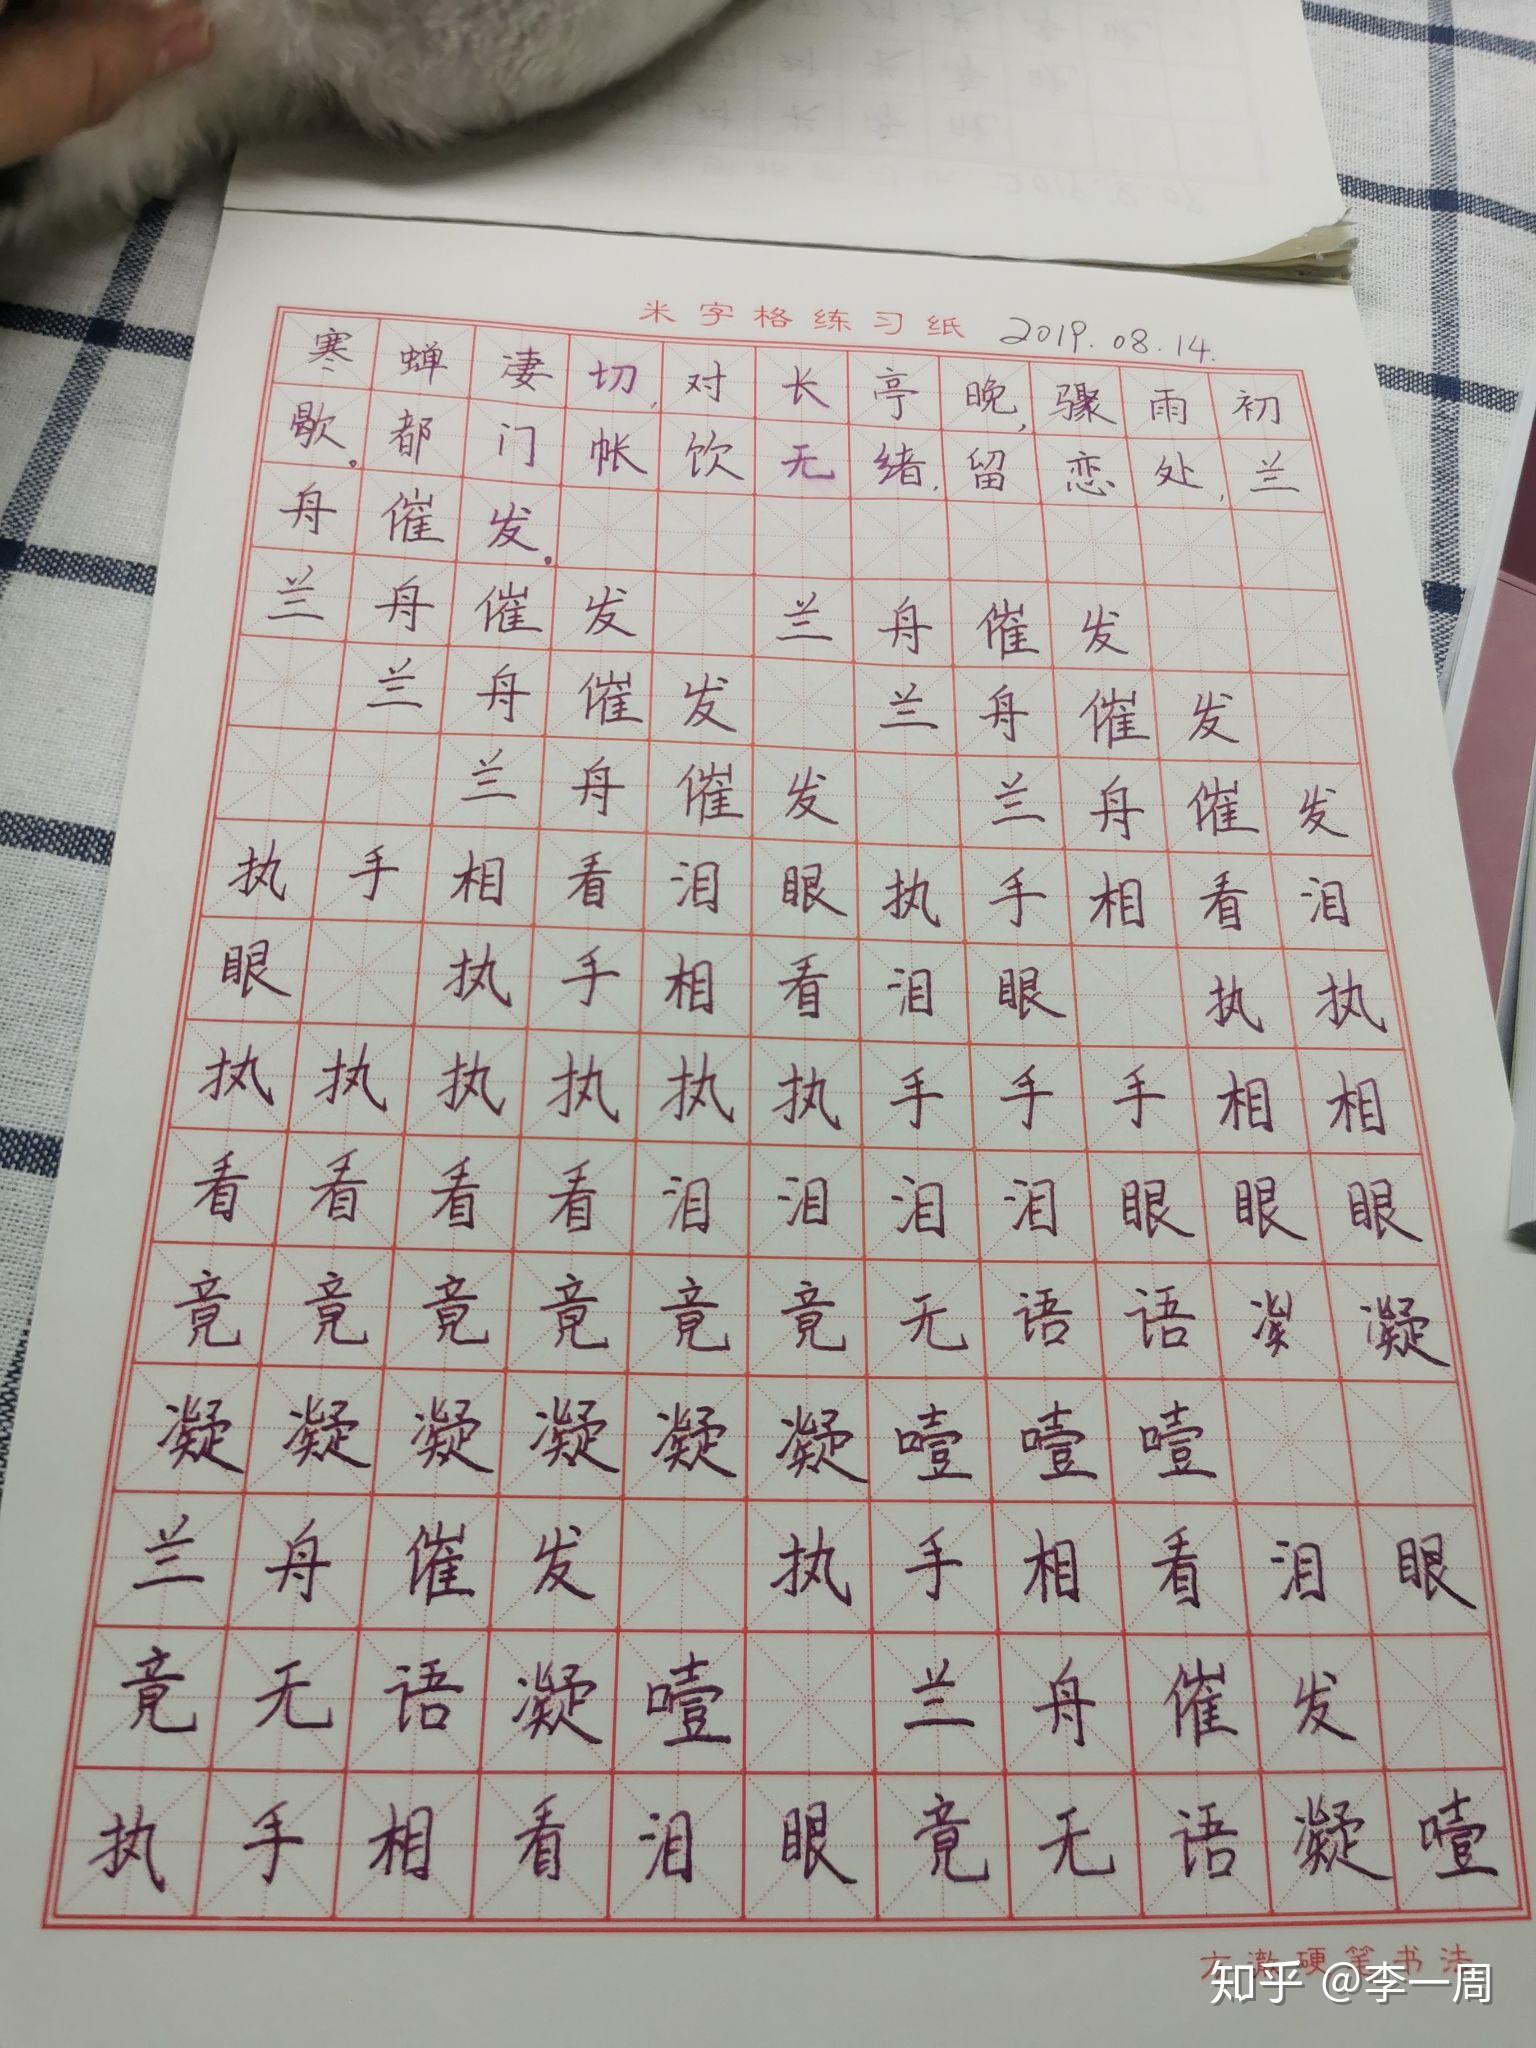 米字格练习纸 2019.08.14.
寒蝉凄切,对长亭晚,骤雨初
歇。都门帐饮无绪,留恋处,兰
舟催发。
兰舟催发 兰舟催发
兰舟催发 兰舟催发
兰舟催发 兰舟催发
执手相看泪眼执手相看泪
眼 执手相看泪眼 执执
执执执执执执手手手相相
看看看看泪泪泪泪眼眼眼
竟竟竟竟竟竟无语语 凝
凝凝凝凝凝凝噎噎噎
兰舟催发 执手相看泪眼
竟无语凝噎 兰舟催发
执手相看泪眼竟无语凝噎
硬笔书法
知乎 @李一周